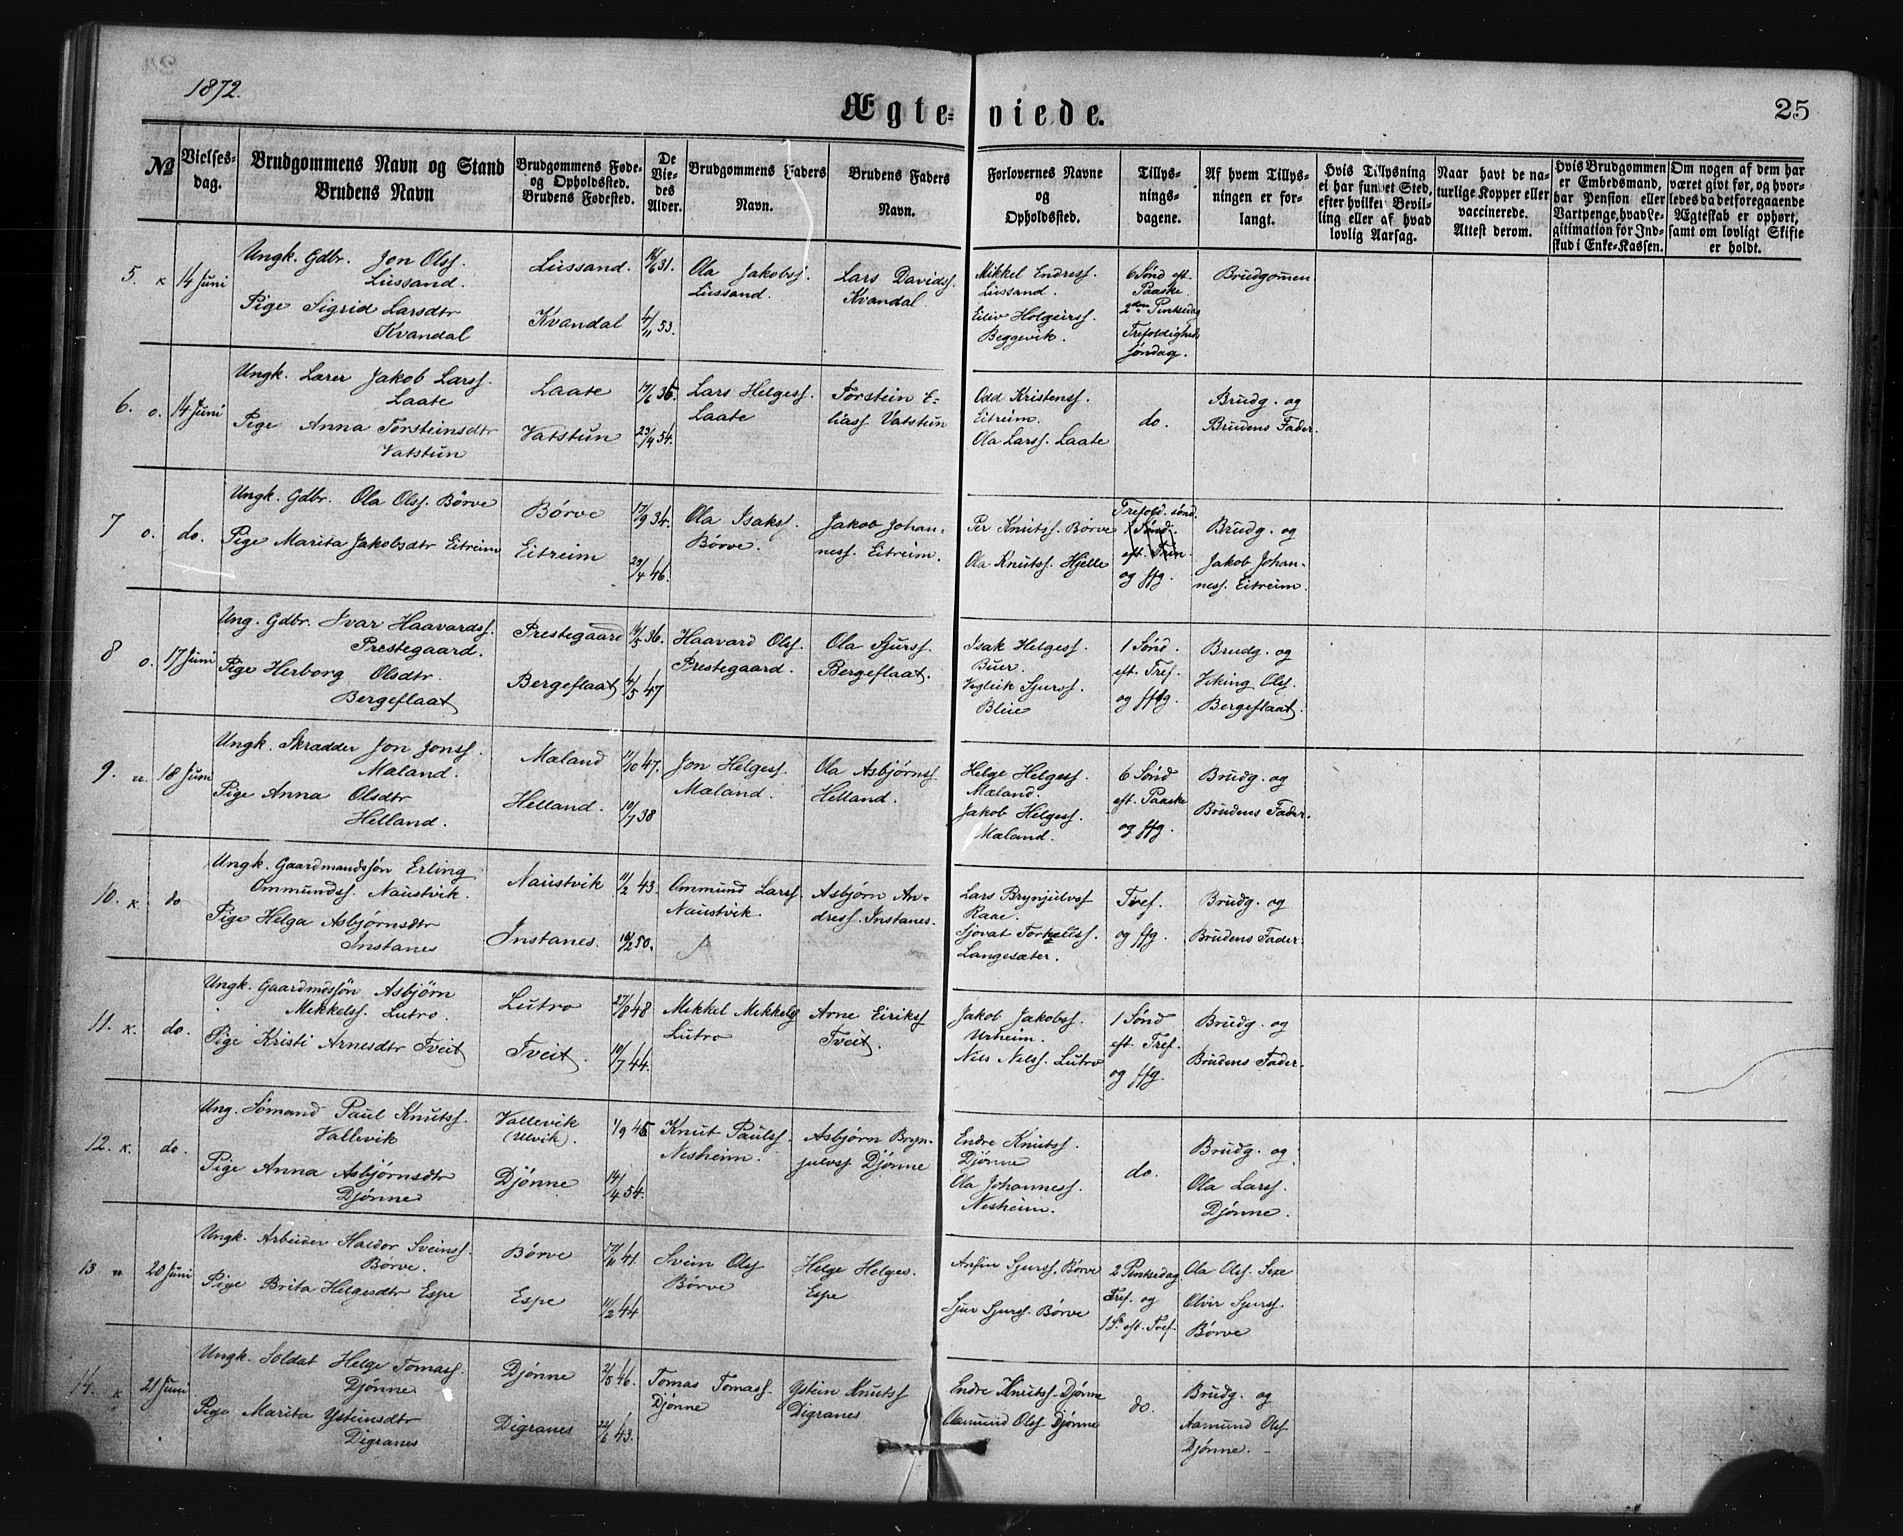 1872.
25
Ægte-viede.
No
Vielses-
dag.
Brudgommens Navn og Stand
Brudens Navn
Brudgommens Føde-
og Opholdssted.
Brudens Fødested.
De
Vie-
des
Alder.
Brudgommens Faders
Navn.
Brudens Faders
Navn.
Forlovernes Navne
og
Opholdssted.
Tillys-
nings-
dagene.
Af hvem Tillys-
ningen er for-
langt.
Hvis Tillysning
ei har fundet Sted,
efter hvilken Bevil-
ling eller af hvad
lovlig Aarsag.
Naar havt de na-
turlige Kopper eller
vaccinerede.
Attest derom.
Hvis Brudgommen
er Embedsmand,
har Pension eller
Vartpenge, hvad Le-
gitimation for Ind-
skud i Enke-Kassen.
Om nogen af dem har
været givt før, og hvor-
ledes da det foregaaende
Ægteskab er ophørt,
samt om lovligt Skifte
er holdt.
5. K 14 Juni
Ungk. Gdbr. Jon Olss.
Lussand.
Pige Sigrid Larsdtr
Kvandal
Lussand.
Kvandal
16/6 31.
4/11 53.
Ola Jakobss.
Lussand.
Lars Davidss.
Kvandal.
Mikkel Endress.
Lussand.
Eiliv Holgeirss.
Beggevik.
6 Sønd eft.
Paaske
2den Pintsedag
Trefoldighed
søndag.
Brudgommen
6. o. 14 Juni
Ungk. Lærer Jakob Larss.
Laate
Pige Anna Torsteinsdtr
Vatstun
Laate
Vatstun
17/6 36.
23/9 54.
Lars Helgess.
Laate
Torstein E-
liass Vatstun
Odd Kristenss.
Eitreim.
Ola Larss. Laate
do.
Brudg. og
Brudens Fader.
7 o. do.
Ungk. Gdbr. Ola Olss. Børve
Pige Marita Jakobsdtr Eitreim
Børve
Eitreim
17/9 34.
29/4 46.
Ola Isakss.
Børve.
Jakob Johan-
ness. Eitreim.
Per Knutss. Børve
Ola Knutss. Hjelle
Trefold. sønd.
1 Sønd.
eft. Trin.
og ffg.
Brudg. og
Jakob Johan-
ness. Eitreim.
8 o. 17 Juni
Ung. Gdbr. Ivar Haavardss.
Prestegaard.
Pige Herborg Olsdtr.
Bergeflaat
Prestegaard
Bergeflaat
4/5 47
Haavard Olss.
Prestegaard.
Ola Sjurss.
Bergeflaat.
Isak Helgess.
Buer.
Vegleik Sjurss.
Bleie
1 Sønd.
eft. Tref.
og ffg.
Brudg. og
Viking Olss.
Bergeflaat.
9. u. 18 Juni
Ungk. Skrædder Jon Jonss.
Mæland.
Pige Anna Olsdtr
Helland.
Mæland
Helland.
11/10 47.
10/7 38
Jon Helgess.
Mæland.
Ola Asbjørnss.
Helland.
Helge Helgess.
Mæland.
Jakob Helgess.
Mæland.
6 Sønd
eft. Paaske
og ffg.
Brudg. og
Brudens Fader.
10. K. do
Ungk. Gaardmandssøn Erling
Ommundss. Naustvik.
Pige Helga Asbjørnsdtr
Instanes
Naustvik
Instanes.
11/2 43.
Ommund Larss.
Naustvik.
Asbjørn An-
dress. Instanes.
Lars Brynjulvss
Raae.
Sjovat Torkellss.
Langesæter.
Tref.
og ffg.
Brudg. og
Brudens Fader.
11. K. do.
Ungk. Gaardmdssøn Asbjørn
Mikkelss. Lutro.
Pige Kristi Arnesdtr Tveit
Lutro
Tveit.
27/8 48
10/7 44.
Mikkel Mikkelss
Lutro
Arne Eirikss
Tveit.
Jakob Jakobss.
Urheim.
Nils Nilss. Lutro
1 Sønd
eft. Tref.
og ffg.
Brudg. og
Brudens Fader.
12. K. do.
Ung. Sømand Paul Knutss.
Vallevik
Pige Anna Asbjørnsdtr
Djønne
Vallevik
(Ulvik).
Djønne
1/9 45
14/4 54.
Knut Paulss.
Nesheim.
Asbjørn Bryn-
julvss Djønne
Endre Knutss.
Djønne
Ola Johanness.
Nesheim.
do.
Brudg. og
Ola Larss.
Djønne.
13 u 20 Juni
Ungk. Arbeider Haldor Sveinss.
Børve.
Pige Brita Helgesdtr Espe
Børve
Espe
17/11 41.
11/2 44
Svein Olss
Børve
Helge Helges.
Espe
Arfin Sjurss. Børve
Sjur Sjurss. Børve
2 Pintsedag
Tref. og
1 S. eft. Tref.
Ola Olss. Sexe
Olvir Sjurss.
Børve
14. K 21 Juni
Ungk. Soldat Helge Tomass.
Djønne
Pige Marita Ysteinsdtr
Digranes
Djønne
Digranes
2/8 46.
22/6 43.
Tomas Tomass.
Djønne
Ystein Knutss
Digranes
Endre Knutss. Djønne
Aamund Olss. Djønne
do.
Brudg. og
Aamund Olss
Djønne.